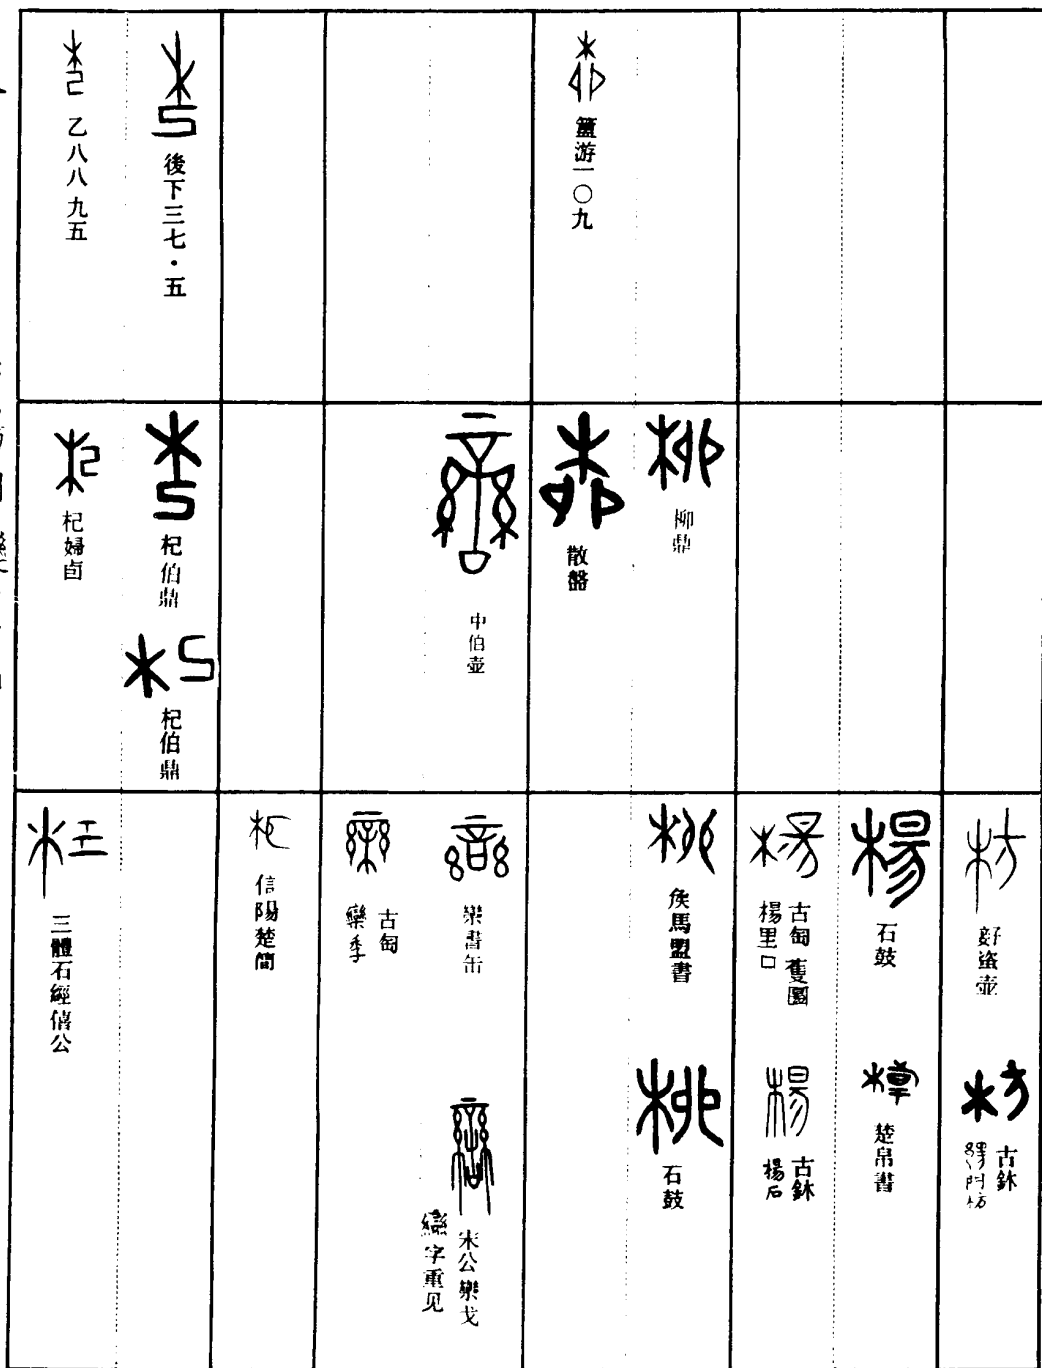 簠游一〇九
後下三七·五
乙八八九五
柳鼎
散盤
中伯壺
杞伯鼎
杞伯鼎
杞婦卣
𧊒盗壺
古鉨
石鼓
楚帛書
古匋 蒦圆
楊里口
古鉨
楊石
矦馬盟書
石鼓
欒書缶
宋公欒戈
䜌字重见
古匋
欒季
信陽楚簡
三體石經僖公